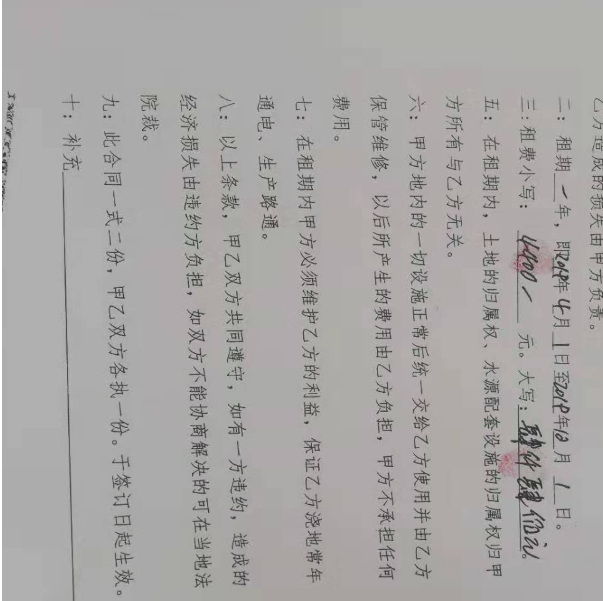 乙方造成的损失由甲方负责。
二：租期一年，即2018年4月1日至2018年12月1日。
三：租费小写：4400一元。大写：肆仟肆佰元。
五：在租期内，土地的归属权、水源配套设施的归属权归甲
方所有与乙方无关。
六：甲方地内的一切设施正常后统一交给乙方使用并由乙方
保管维修，以后所产生的费用由乙方负担，甲方不承担任何
费用。
七：在租期内甲方必须维护乙方的利益，保证乙方浇地常年
通电、生产路通。
八：以上条款，甲乙双方共同遵守，如有一方违约，造成的
经济损失由违约方负担，如双方不能协商解决的可在当地法
院裁。
九：此合同一式二份，甲乙双方各执一份。于签订日起生效。
十：补充